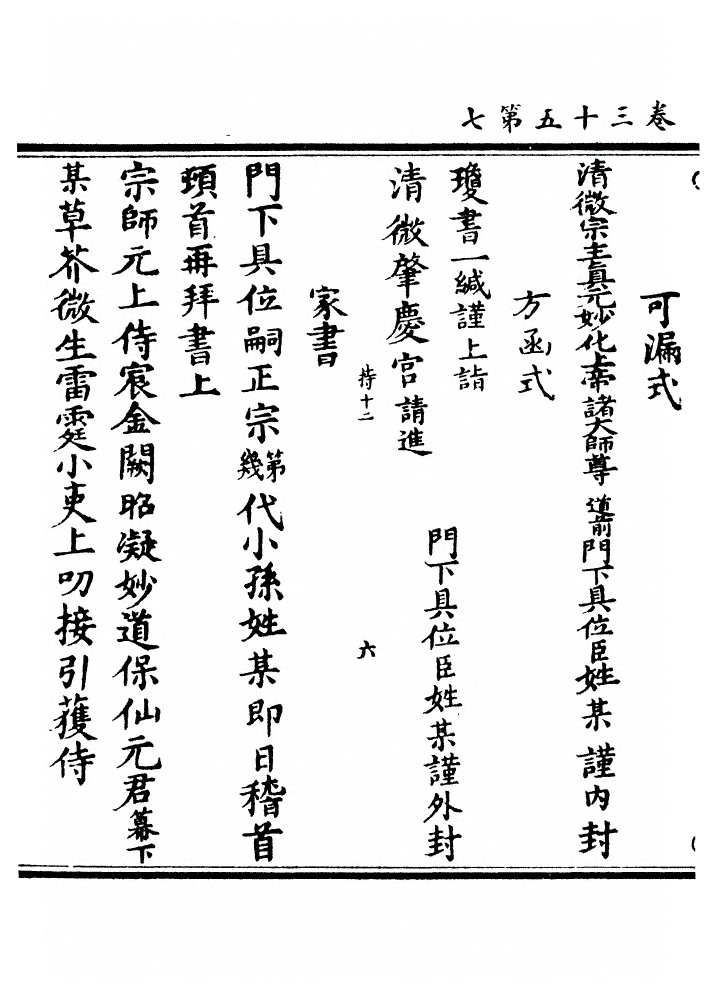 卷三十五第七
可漏式
清微宗主真元妙化上帝諸大師尊 道前門下具位臣姓某 謹內封
方函式
瓊書一緘謹上詣
門下具位臣姓某謹外封
清微肇慶宮請進
持十二 六
家書
門下具位嗣正宗第幾代小孫姓某即日稽首
頓首再拜書上
宗師元上侍宸金闕昭凝妙道保仙元君幕下
某草芥微生雷霆小吏上叨接引獲侍